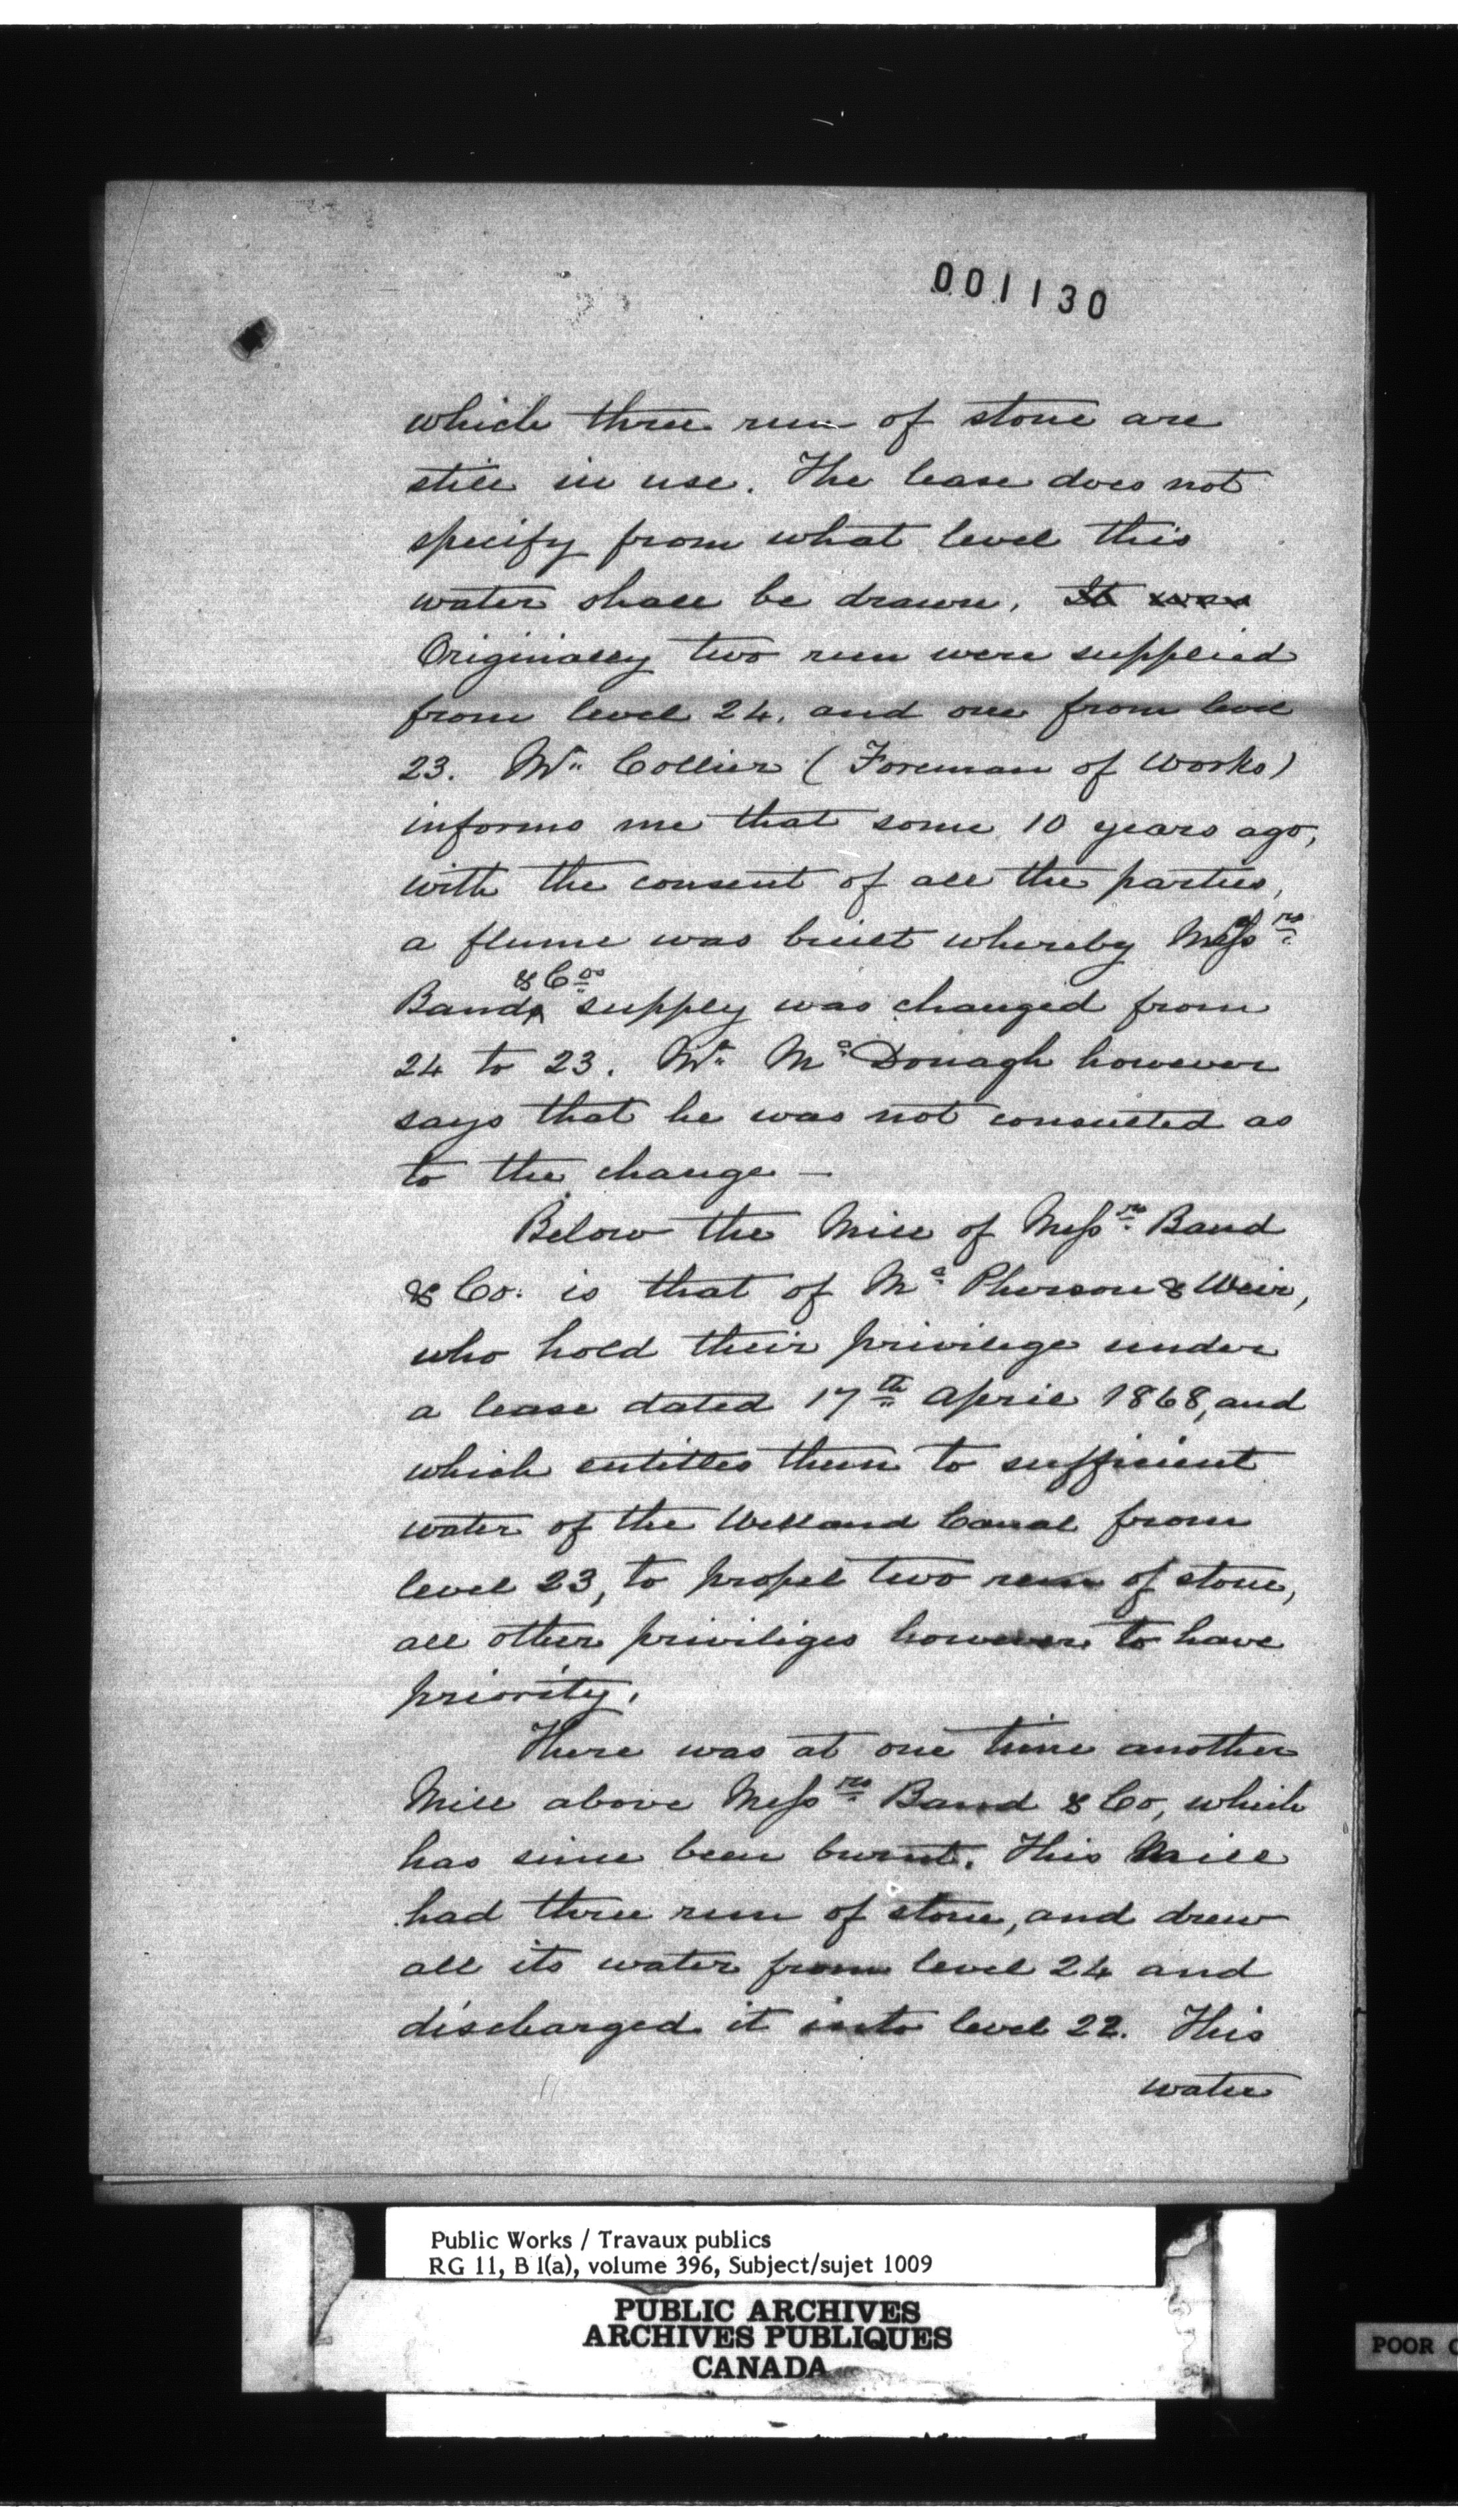 001130
which three run of stone are
still in use. The lease does not
specify from what level this
water shall be drawn. It was
Originally two run were supplied
from level 24. and one from level
23. Mr. Collier (Foreman of Works)
informs me that some 10 years ago,
with the consent of all the parties,
a flume was built whereby Messrs.
& Cos
Bands supply was changed from
24 to 23. Mr. McDonagh however
says that he was not consulted as
to the change —
Below the Mill of Messrs. Band
& Co. is that of McPherson & Weir,
who hold their privilege under
a lease dated 17th April 1868, and
which entitles them to sufficient
water of the Welland Canal from
level 23, to propel two run of stone,
all other priviliges however to have
priority.
There was at one time another
Mill above Messrs. Band & Co, which
has since been burnt. This Mill
had three run of stone, and drew
all its water from level 24 and
discharged it into level 22. This
water
Public Works / Travaux publics
RG 11, B 1(a), volume 396, Subject/sujet 1009
PUBLIC ARCHIVES
ARCHIVES PUBLIQUES
CANADA
POOR